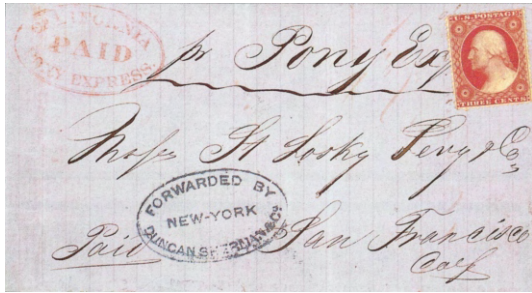 CALIFORNIA
PAID
CITY EXPRESS.
pr Pony Ex
U.S. POSTAGE
THREE CENTS
St Losky Levy & Co
FORWARDED BY
NEW-YORK
DUNCAN SHERMAN & Co
Paid
San Francisco
Cal